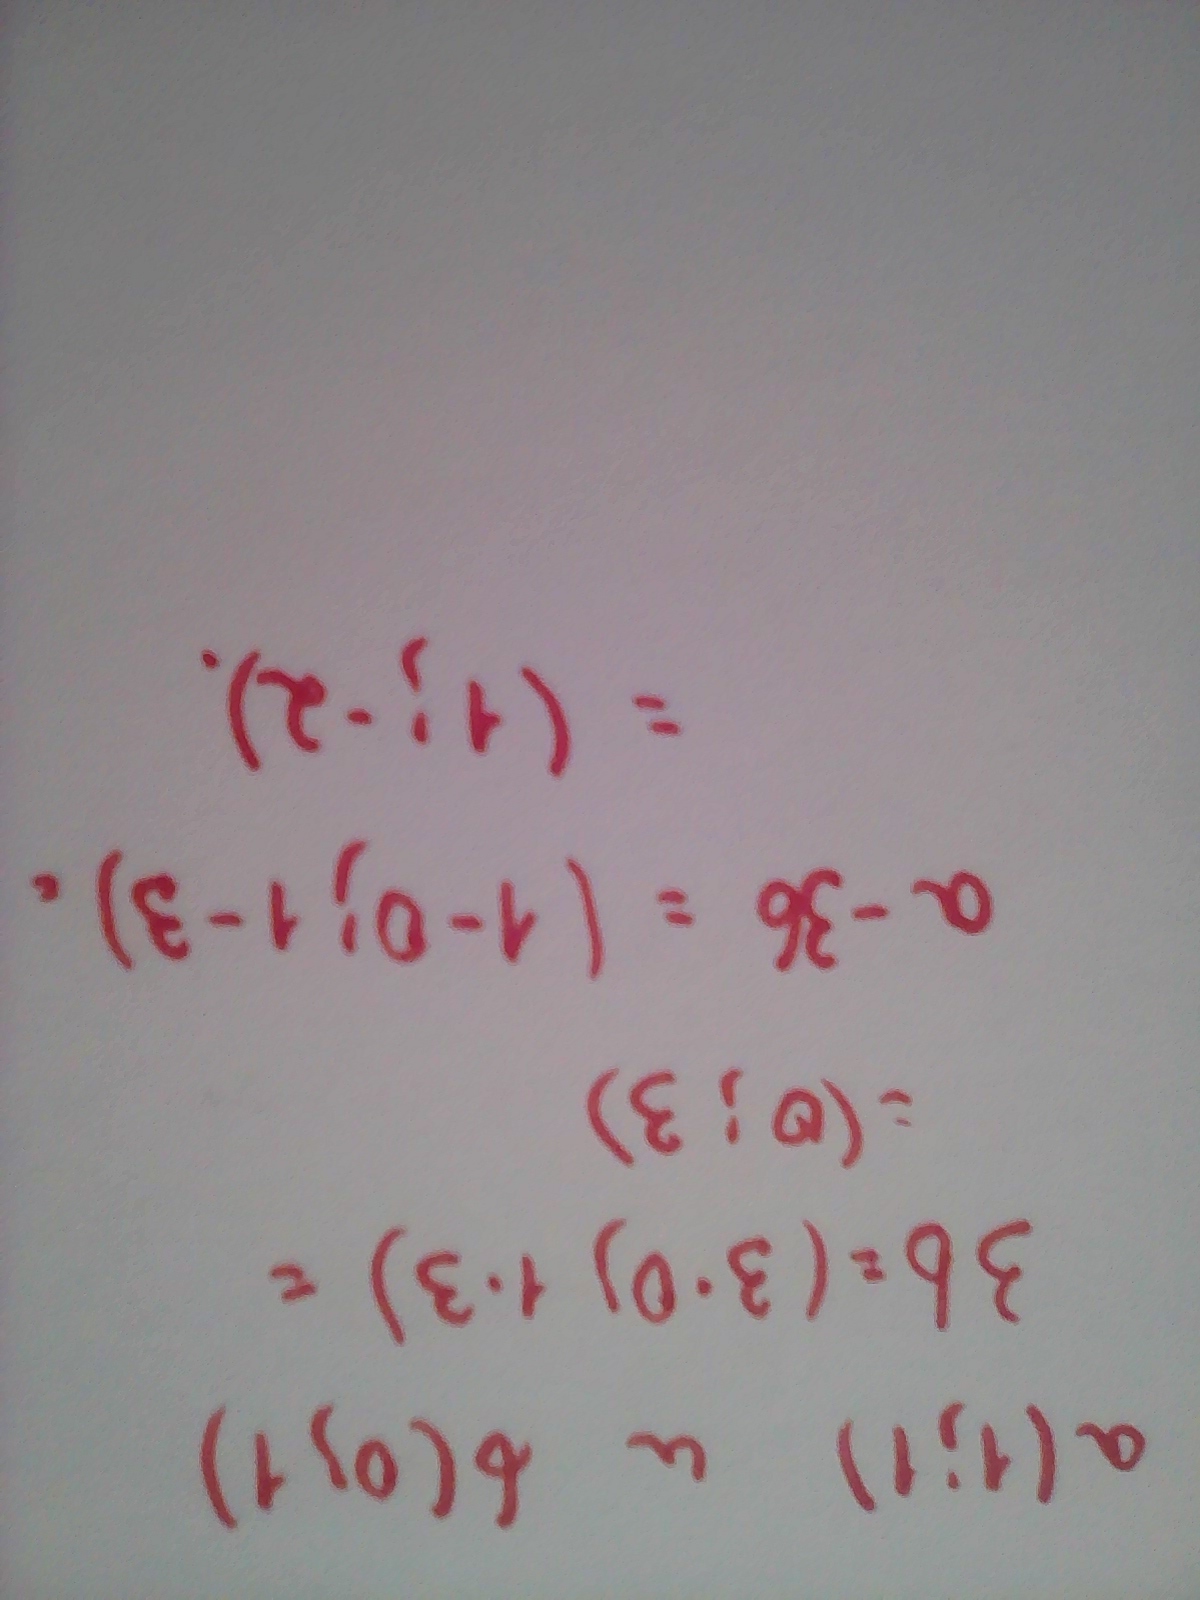 a(1;1) и b(0;1)
3b=(3·0; 1·3) =
=(0; 3)
a-3b = (1-0; 1-3).
= (1; -2).